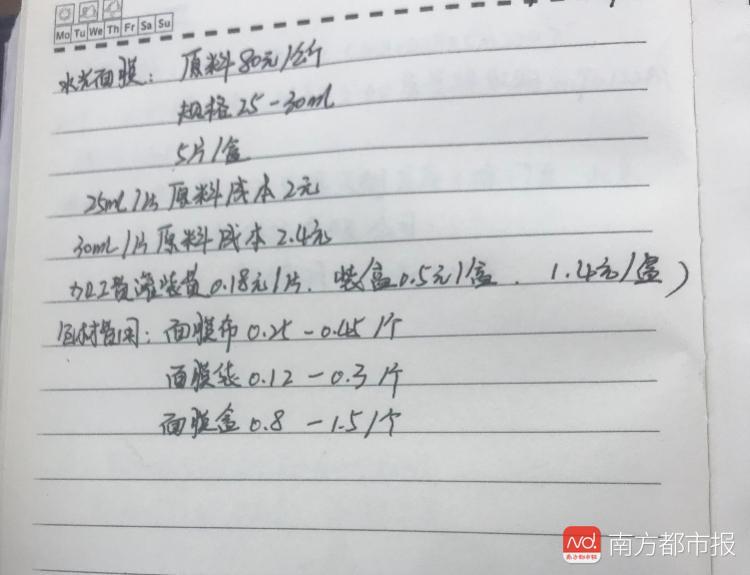 Mo Tu We Th Fr Sa Su
水光面膜: 原料80元/公斤
规格25-30ml
5片/盒
25ml/片 原料成本2元
30ml/片 原料成本2.4元
加工费灌装费0.18元/片、装盒0.5元/盒、1.4元/盒)
包材费用: 面膜布0.25-0.45/个
面膜袋0.12-0.3/个
面膜盒0.8-1.5/个
Nd.
南方都市报
南方都市报